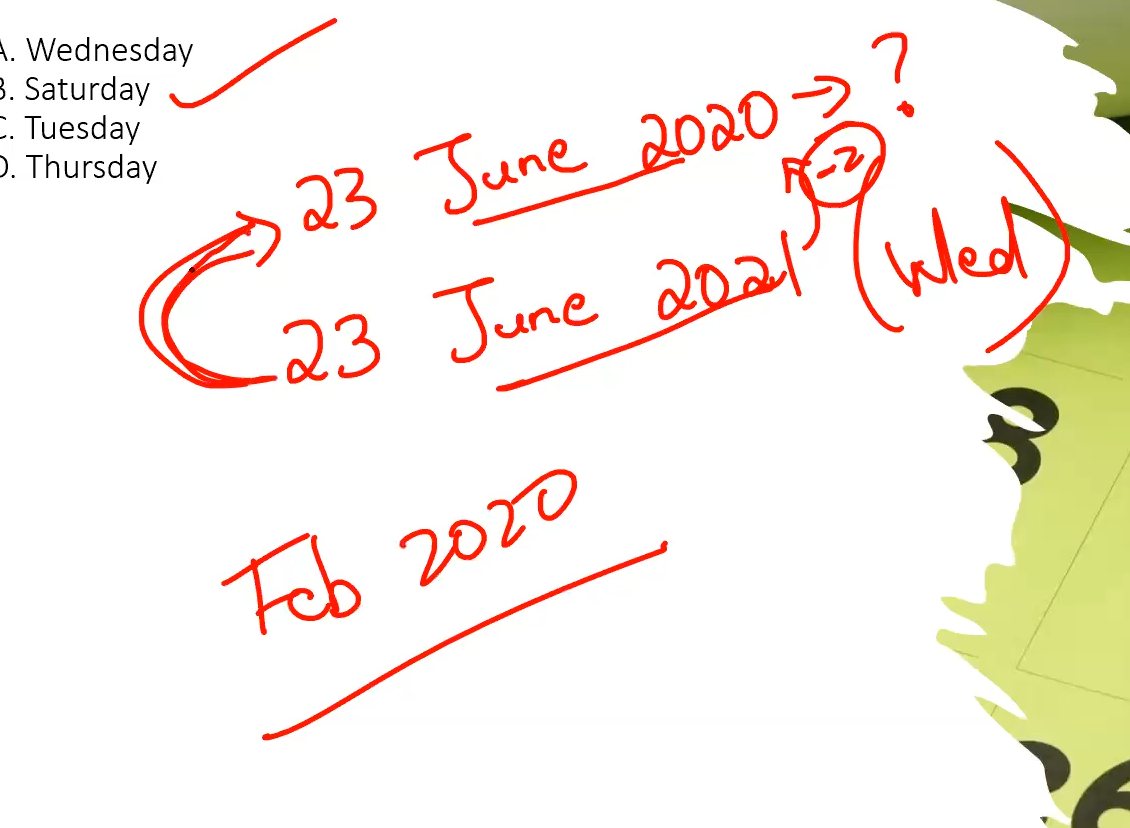 A. Wednesday
B. Saturday
C. Tuesday
D. Thursday
23 June 2020 → ?
-2
23 June 2021 (Wed)
Feb 2020
8